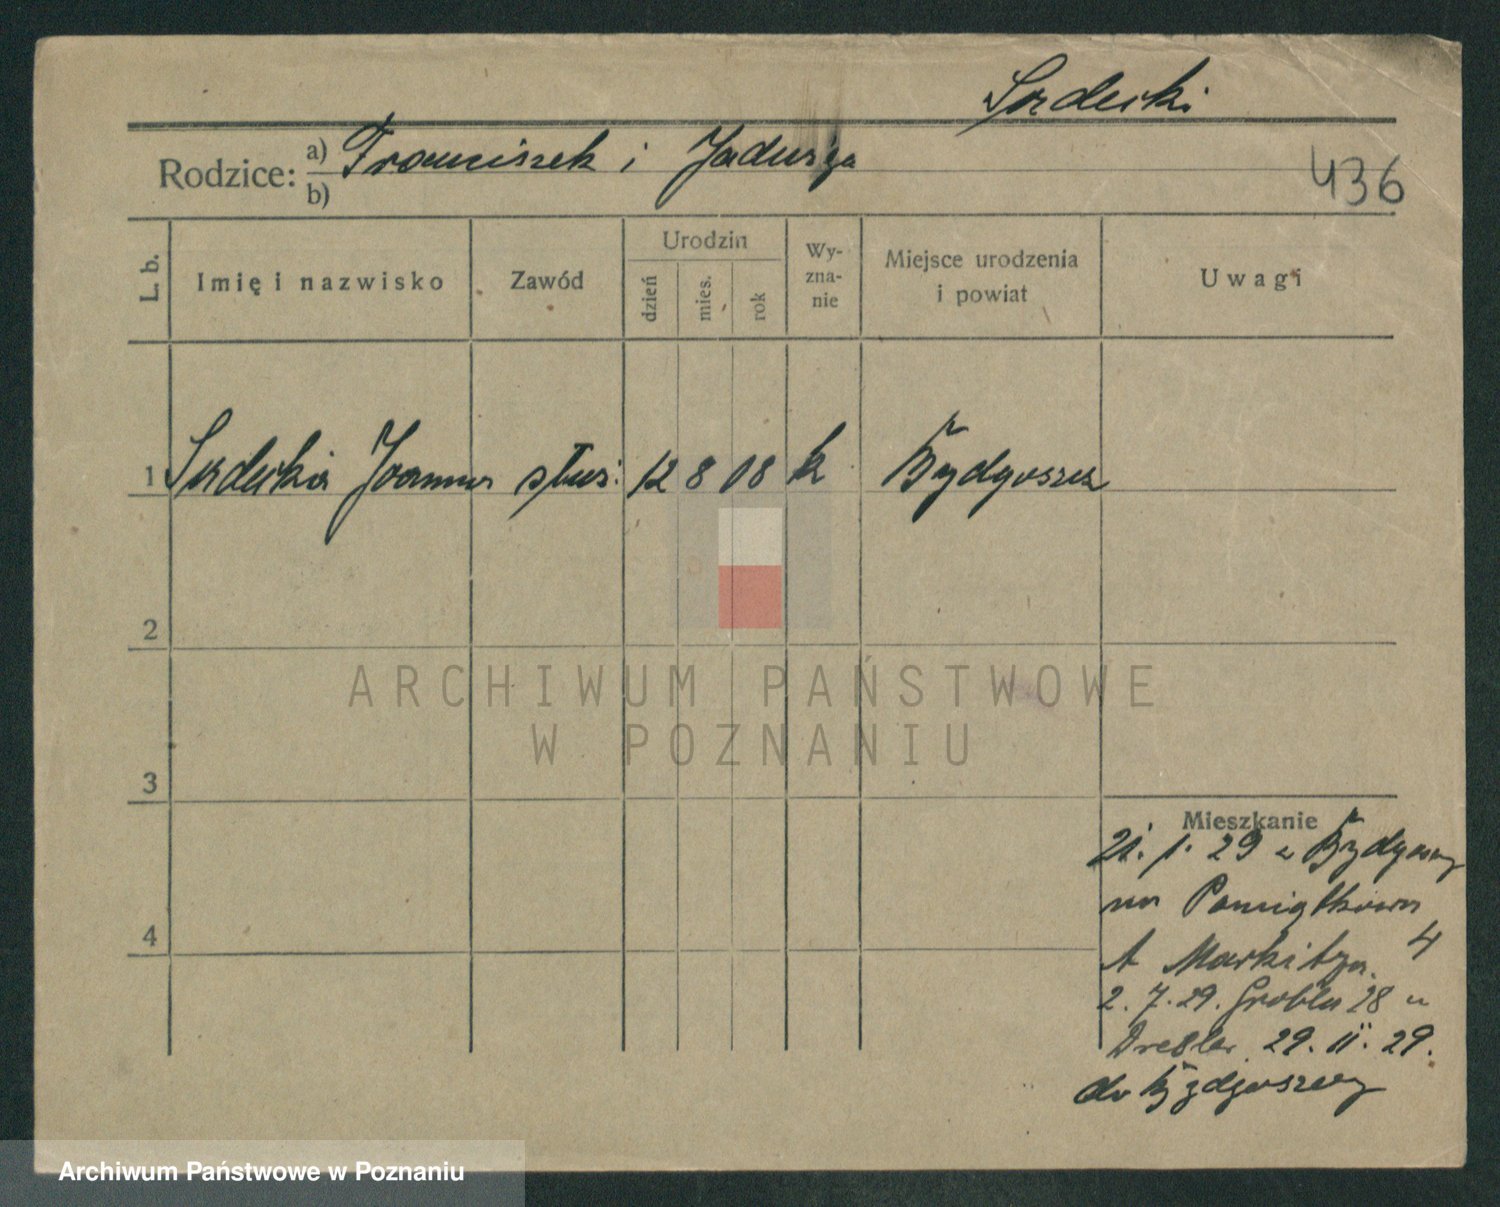 Rodzice: a) Franciszek i
b)
436
L. b.
Imię i nazwisko
Zawód
Urodzin
dzień
mies.
rok
Wy-
zna-
nie
Miejsce urodzenia
i powiat
Uwagi
1 Joanna służ. 12 8 08 k Bydgoszcz
2
3
4
Mieszkanie
21. 1. 29 z Bydgoszczy
na Pamiątkowa
4
2. 7. 29. Grobla 28 u
29. 11. 29.
do Bydgoszczy
ARCHIWUM PAŃSTWOWE
W POZNANIU
Archiwum Państwowe w Poznaniu